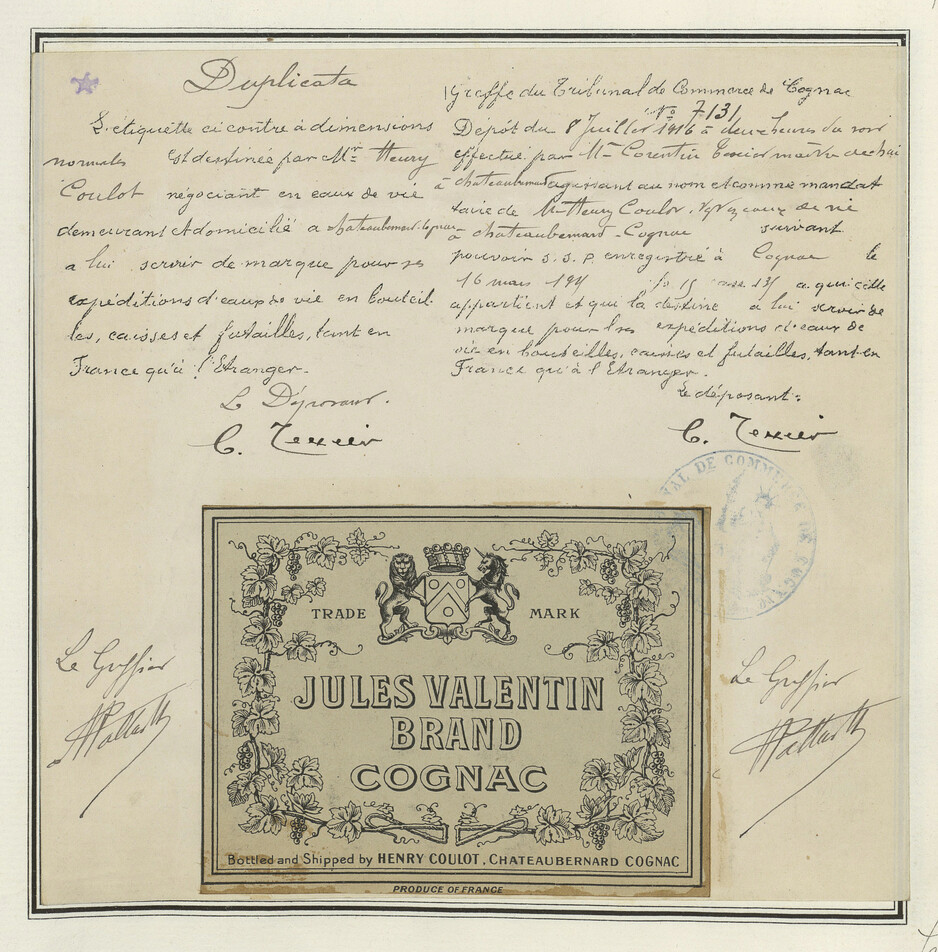 Duplicata
L'étiquette ci contre à dimensions
normales Est destinée par Mr Henry
Coulot négociant en eaux de vie
demeurant et domicilié à chateaubernard-Cognac
a lui servir de marque pour ses
expéditions d'eaux de vie en bouteil
les, caisses et futailles, tant en
France qu'à l'Etranger.
Le Déposant.
C. Texier
Greffe du Tribunal de Commerce de Cognac
No 7131
Dépôt du 8 Juillet 1916 à deux heures du soir
effectué par Mr Corentin Texier maître de chai
à chateaubernard agissant au nom et comme mandat
taire de Mr Henry Coulot, Ngt eaux de vie
à chateaubernard-Cognac suivant
pouvoir S.S.P. enregistré à Cognac le
16 mars 191 fo 15 case 131 a qui elle
appartient et qui la destine a lui servir de
marque pour les expéditions d'eaux de
vie en bouteilles, caisses et futailles, tant en
France qu'à l'Etranger.
Le déposant:
C. Texier
TRIBUNAL DE COMMERCE DE COGNAC
Le Greffier
Le Greffier
TRADE MARK
JULES VALENTIN
BRAND
COGNAC
Bottled and Shipped by HENRY COULOT, CHATEAUBERNARD COGNAC
PRODUCE OF FRANCE